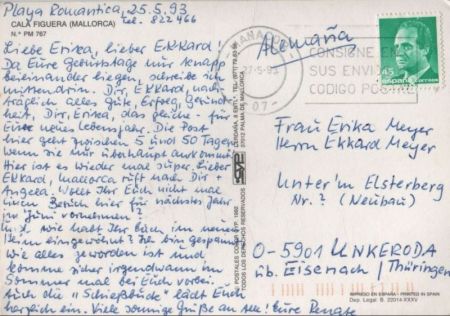 Playa Romantica, 25.5.93
CALA FIGUERA (MALLORCA)
Tel. 822 466
N.º PM 767
Liebe Erika, lieber Ekkard!
Da Eure Geburtstage nur knapp
beieinander liegen, schreibe ich
mittendrin. Dir, Ekkard, nach-
träglich alles Gute, Erfolg, Gesund-
heit, Dir, Erika, das gleiche für
Euer neues Lebensjahr. Die Post
hier geht zwischen 5 und 50 Tagen,
wenn sie überhaupt ankommt.
Hier ist es wieder mal super. Lieber
Ekkard, Mallorca ruft nach Dir +
Angela. Wollt Ihr Euch nicht mal
einen für nächstes Jahr
im Juni vornehmen?
wie habt Ihr Euch im neuen
Heim eingewöhnt? Ich bin gespannt,
wie alles geworden ist und
komme sicher irgendwann im
Sommer mal bei Euch vorbei.
Auch die "Schießbude" lädt Euch
herzlich ein. Viele sonnige Grüße an alle! Eure Renate
27-5-93
07-
CONSIGNE EN
SUS ENVIOS
CODIGO POSTAL
45
España correos
Alemaña
POSTALES COLOR SYP. 1992
TODOS LOS DERECHOS RESERVADOS
07012 PALMA DE MALLORCA
Frau Erika Meyer
Herrn Ekkard Meyer
Unter'm Elsterberg
Nr. ? (Neubau)
O-5901 UNKERODA
üb. Eisenach / Thüringen
IMPRESO EN ESPAÑA
Dep. Legal B. 22014-XXXV